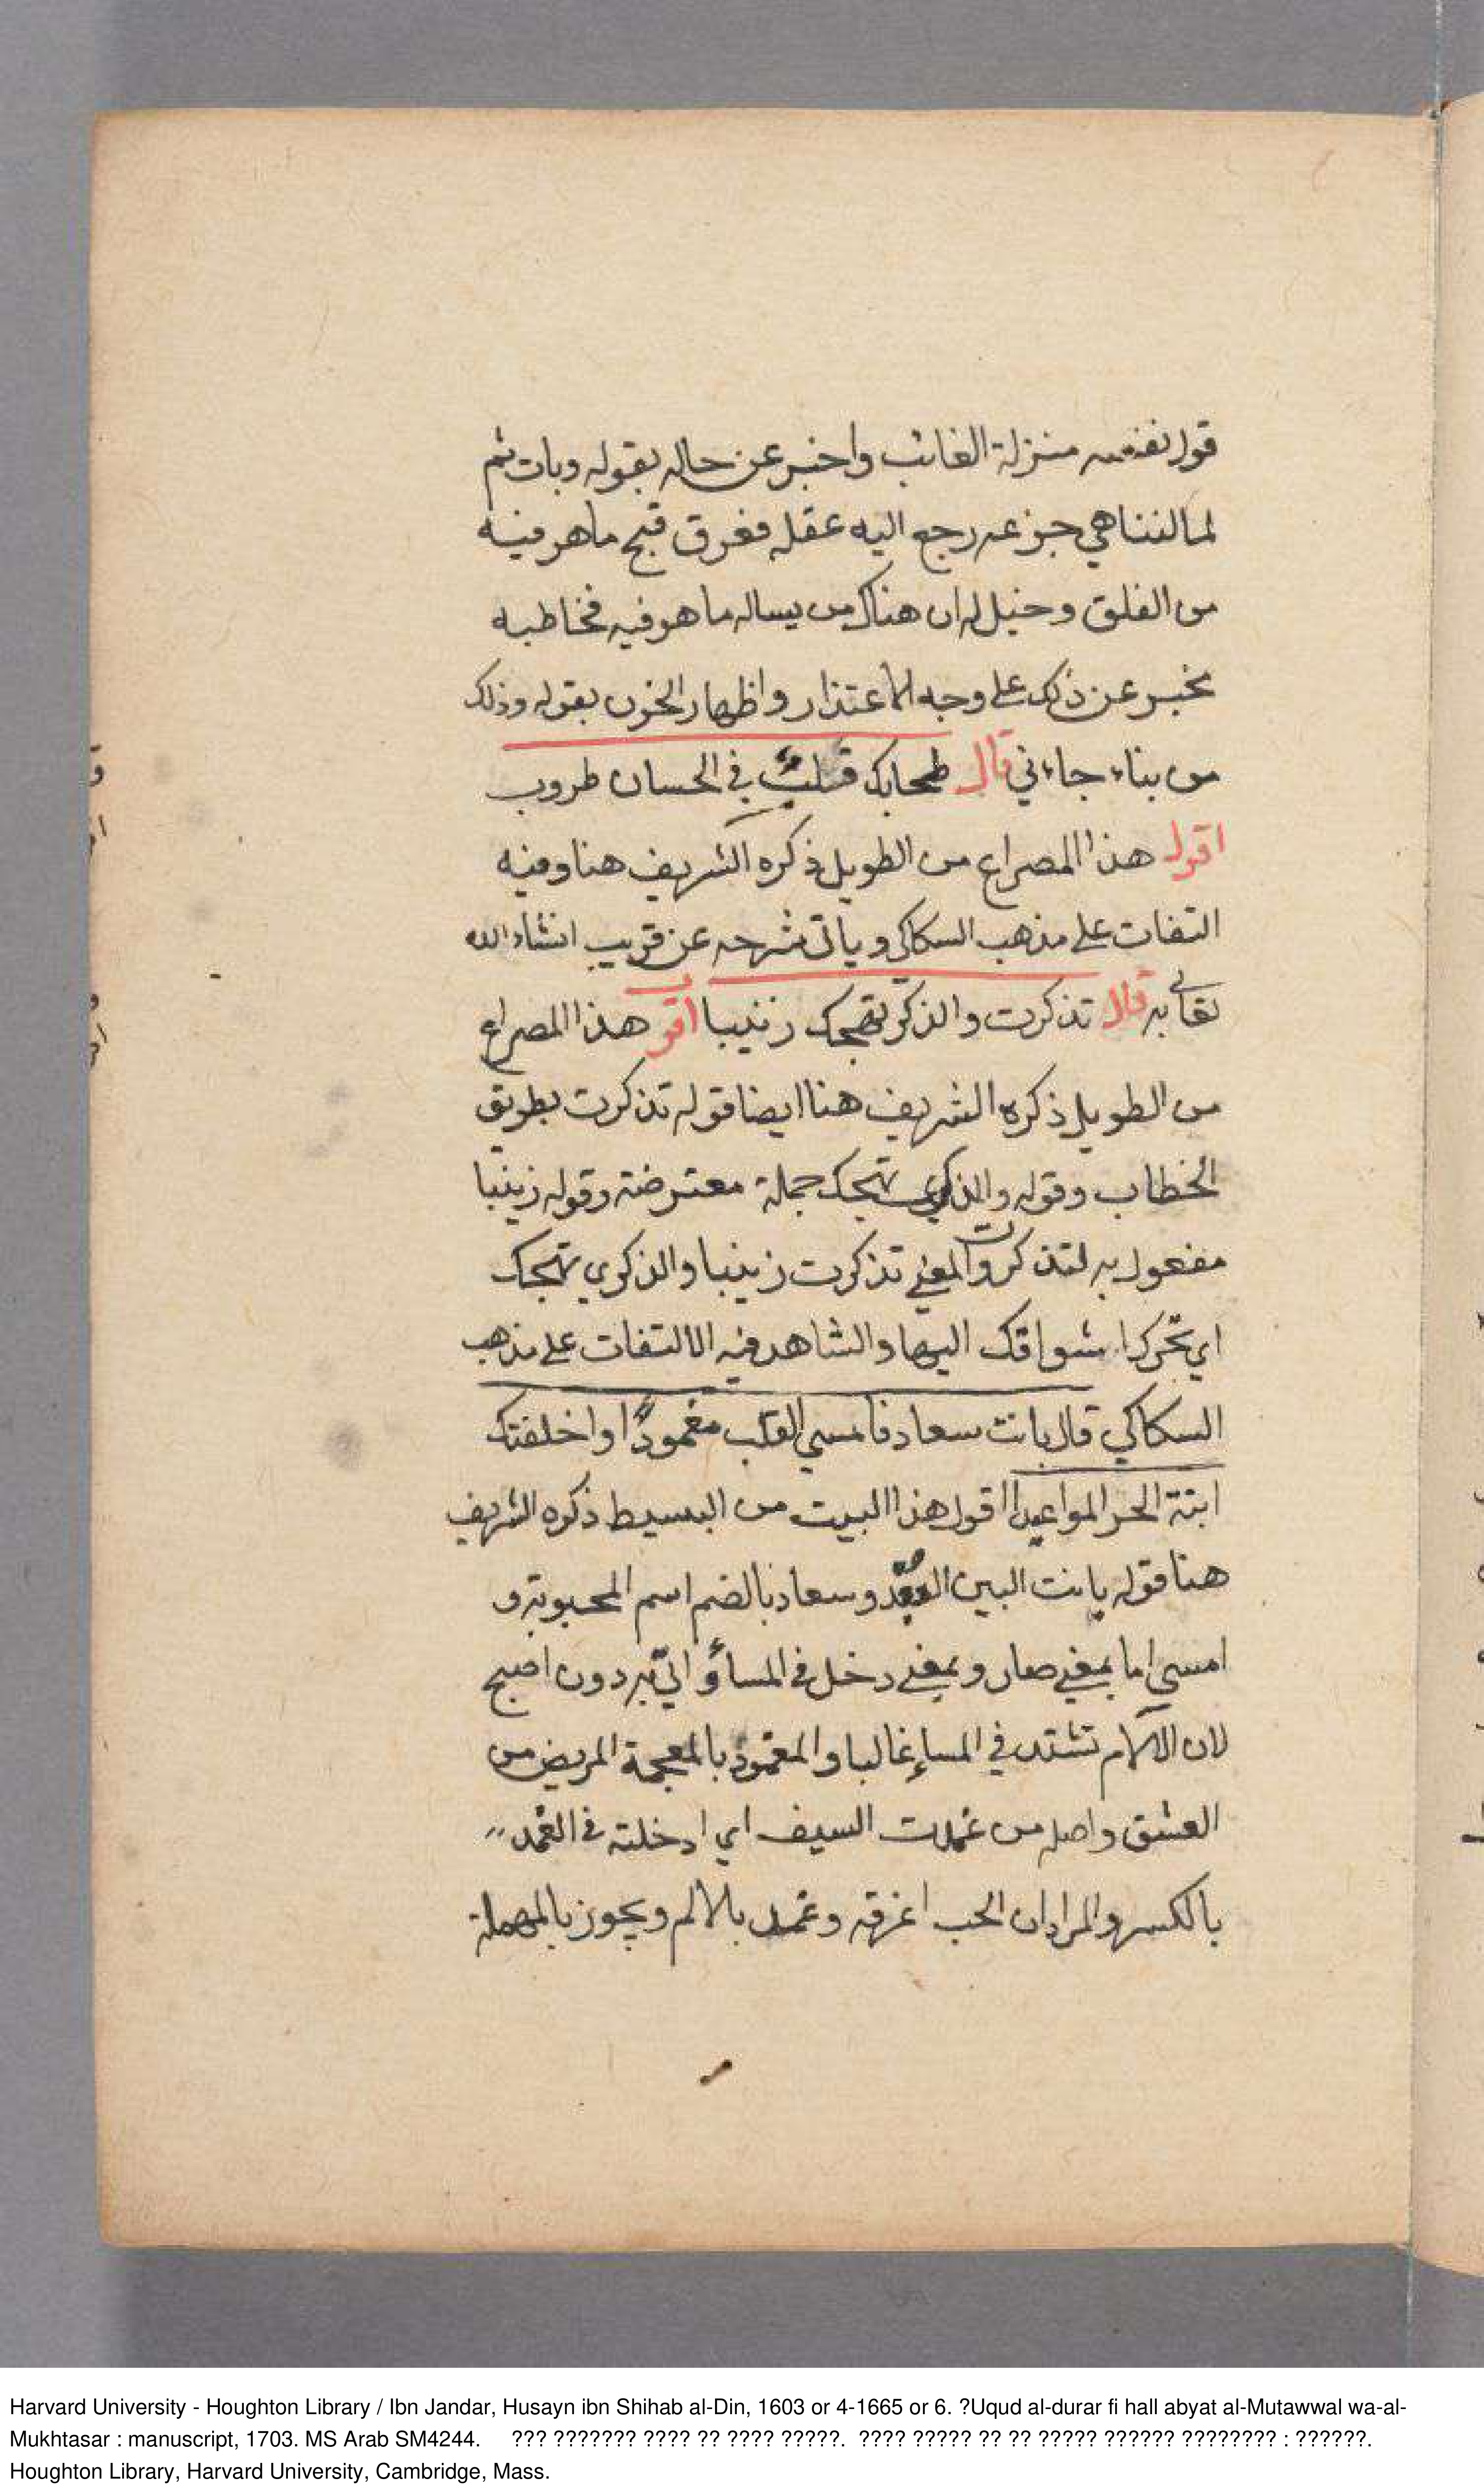 قول نفسه منزلة الغائب واخبر عن حاله بقوله وبات ثم
لما لتناهي جزعه رجع اليه عقله فعرف قبح ماهر فيه
من القلق وخيل له ان هناك من يساله ما هو فيه فخاطبه
يخبر عن ذلك على وجه الاعتذار واظهار الحزن بقوله وذلك
من بناء جاءني قال طحابك قلب في الحسان طروب
اقول هذا المصراع من الطويل ذكره الشريف هنا وفيه
التفات على مذهب السكاكي وياتي شرحه عن قريب انشاء الله
تعالى به قال تذكرت والذكرى تهيجك زينبا اقو هذا المصراع
من الطويل ذكره الشريف هنا ايضا قوله تذكرت بطريق
الخطاب وقوله والذكرى تهيجك جملة معترضة وقوله زينبا
مفعول به لتذكرت والمعنى تذكرت زينبا والذكرى تهيجك
اي تحرك اشواقك اليها والشاهد فيه الالتفات على مذهب
السكاكي قال بانت سعاد فامسى القلب مغمودًا واخلفتك
ابنة الحر المواعيدا اقول هذا البيت من البسيط ذكره الشريف
هنا قوله بانت البين البعد وسعاد بالضم اسم المحبوبة و
امسى اما بمعنى صار وبمعنى دخل في المساء واتى به دون اصبح
لان الآلام تشتد في المساء غالبا والمغمود بالمعجمة المريض من
العشق واصله من غمدت السيف اي ادخلته في الغمد
بالكسر والمراد ان الحب اغرقه وغمد بالالم ويجوز بالمهملة
Harvard University - Houghton Library / Ibn Jandar, Husayn ibn Shihab al-Din, 1603 or 4-1665 or 6. ?Uqud al-durar fi hall abyat al-Mutawwal wa-al-
Mukhtasar : manuscript, 1703. MS Arab SM4244. ??? ??????? ???? ?? ???? ?????. ???? ????? ?? ?? ????? ?????? ???????? : ??????.
Houghton Library, Harvard University, Cambridge, Mass.